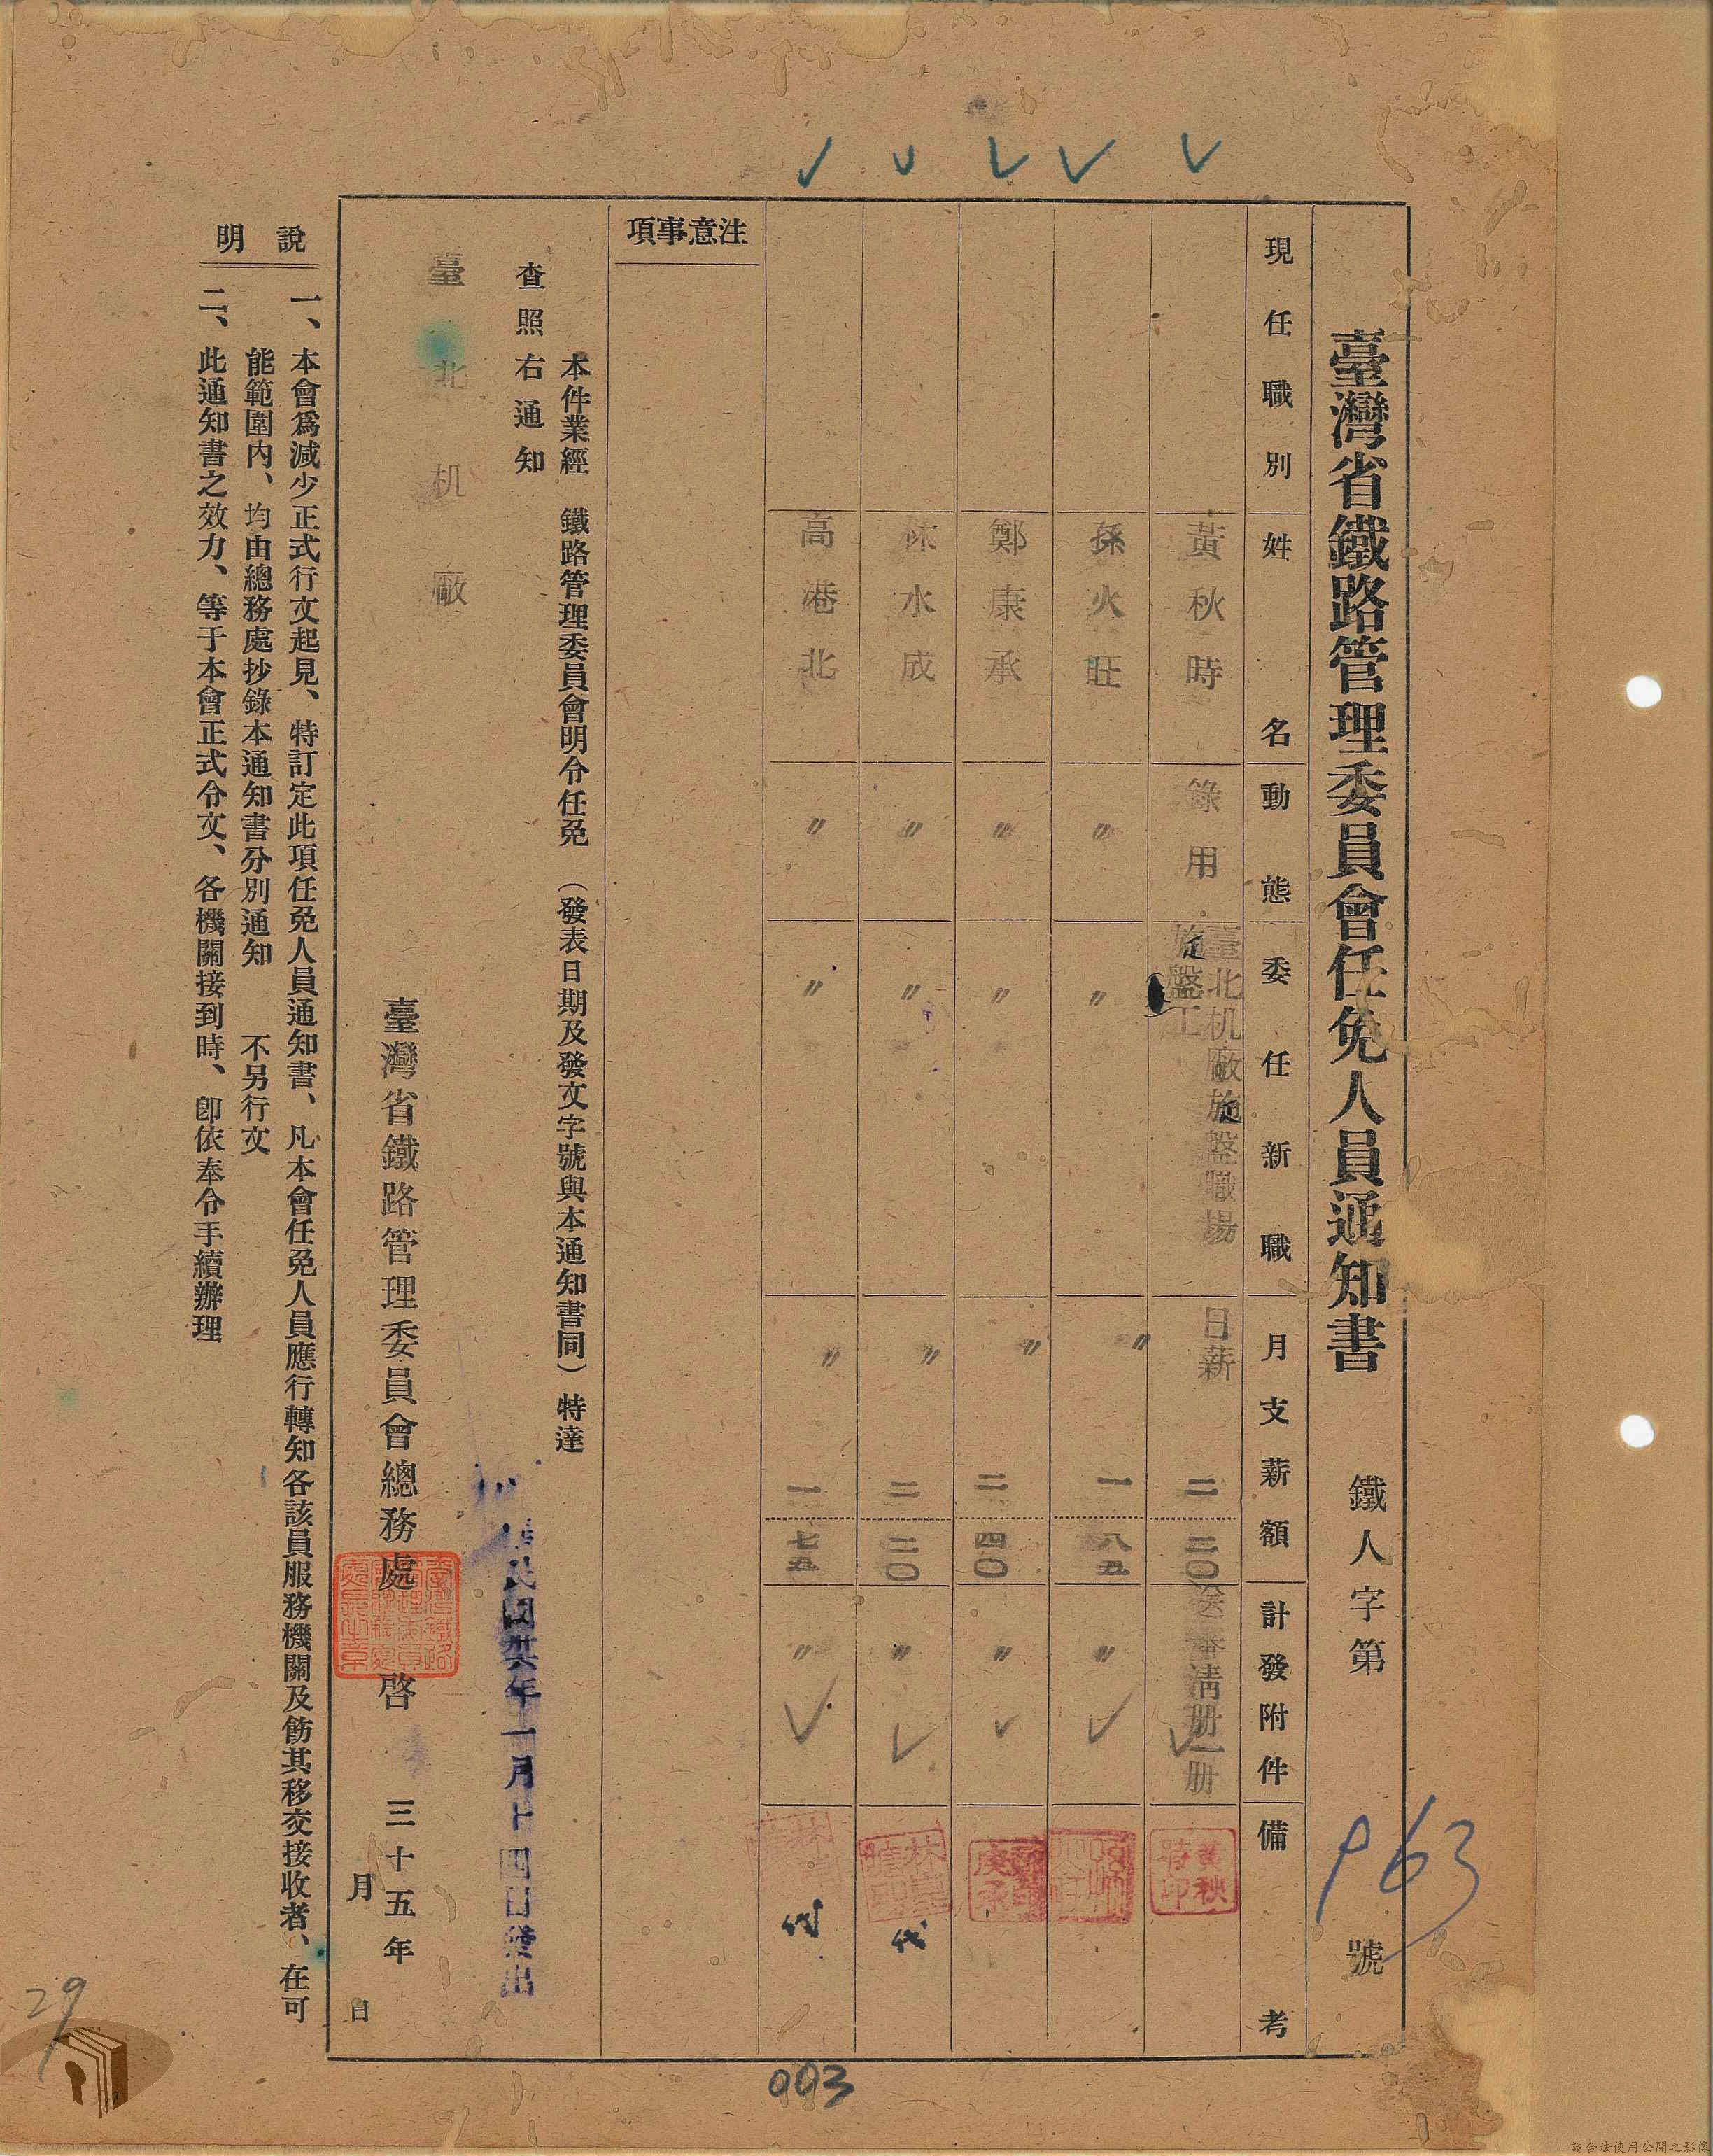 臺灣省鐵路管理委員會任免人員通知書 鐵人字第963號
現任職別 姓名 動態 委任新職 月支薪額 計發附件 備考
黃秋時 錄用 臺北机廠旋盤職場 旋盤工 日薪 二 二〇 送審清册一册
黃秋時印
孫火旺 〃 〃 〃 一 八五 〃
鄭康承 〃 〃 〃 二 四〇 〃
林水成 〃 〃 〃 二 二〇 〃 代
高港北 〃 〃 〃 一 七五 〃 代
注意事項
本件業經 鐵路管理委員會明令任免 (發表日期及發文字號與本通知書同) 特達
查照右通知
中華民國卅六年一月十四日發出
臺北机廠
臺灣省鐵路管理委員會總務處 啓 三十五年
月 日
說明
一、本會爲減少正式行文起見、特訂定此項任免人員通知書、凡本會任免人員應行轉知各該員服務機關及飭其移交接收者、在可
能範圍內、均由總務處抄錄本通知書分別通知 不另行文
二、此通知書之效力、等于本會正式令文、各機關接到時、卽依奉令手續辦理
003
29
請合法使用公開之影像